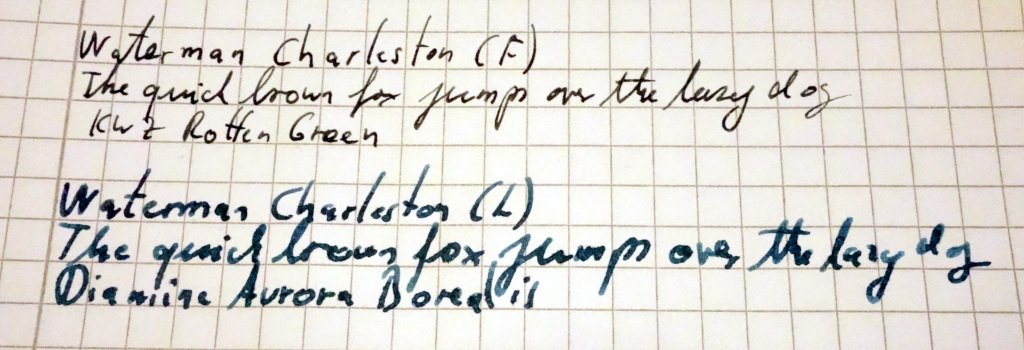 Waterman Charleston (F)
The quick brown fox jumps over the lazy dog
KWZ Rotten Green
Waterman Charleston (L)
The quick brown fox jumps over the lazy dog
Diamine Aurora Borealis